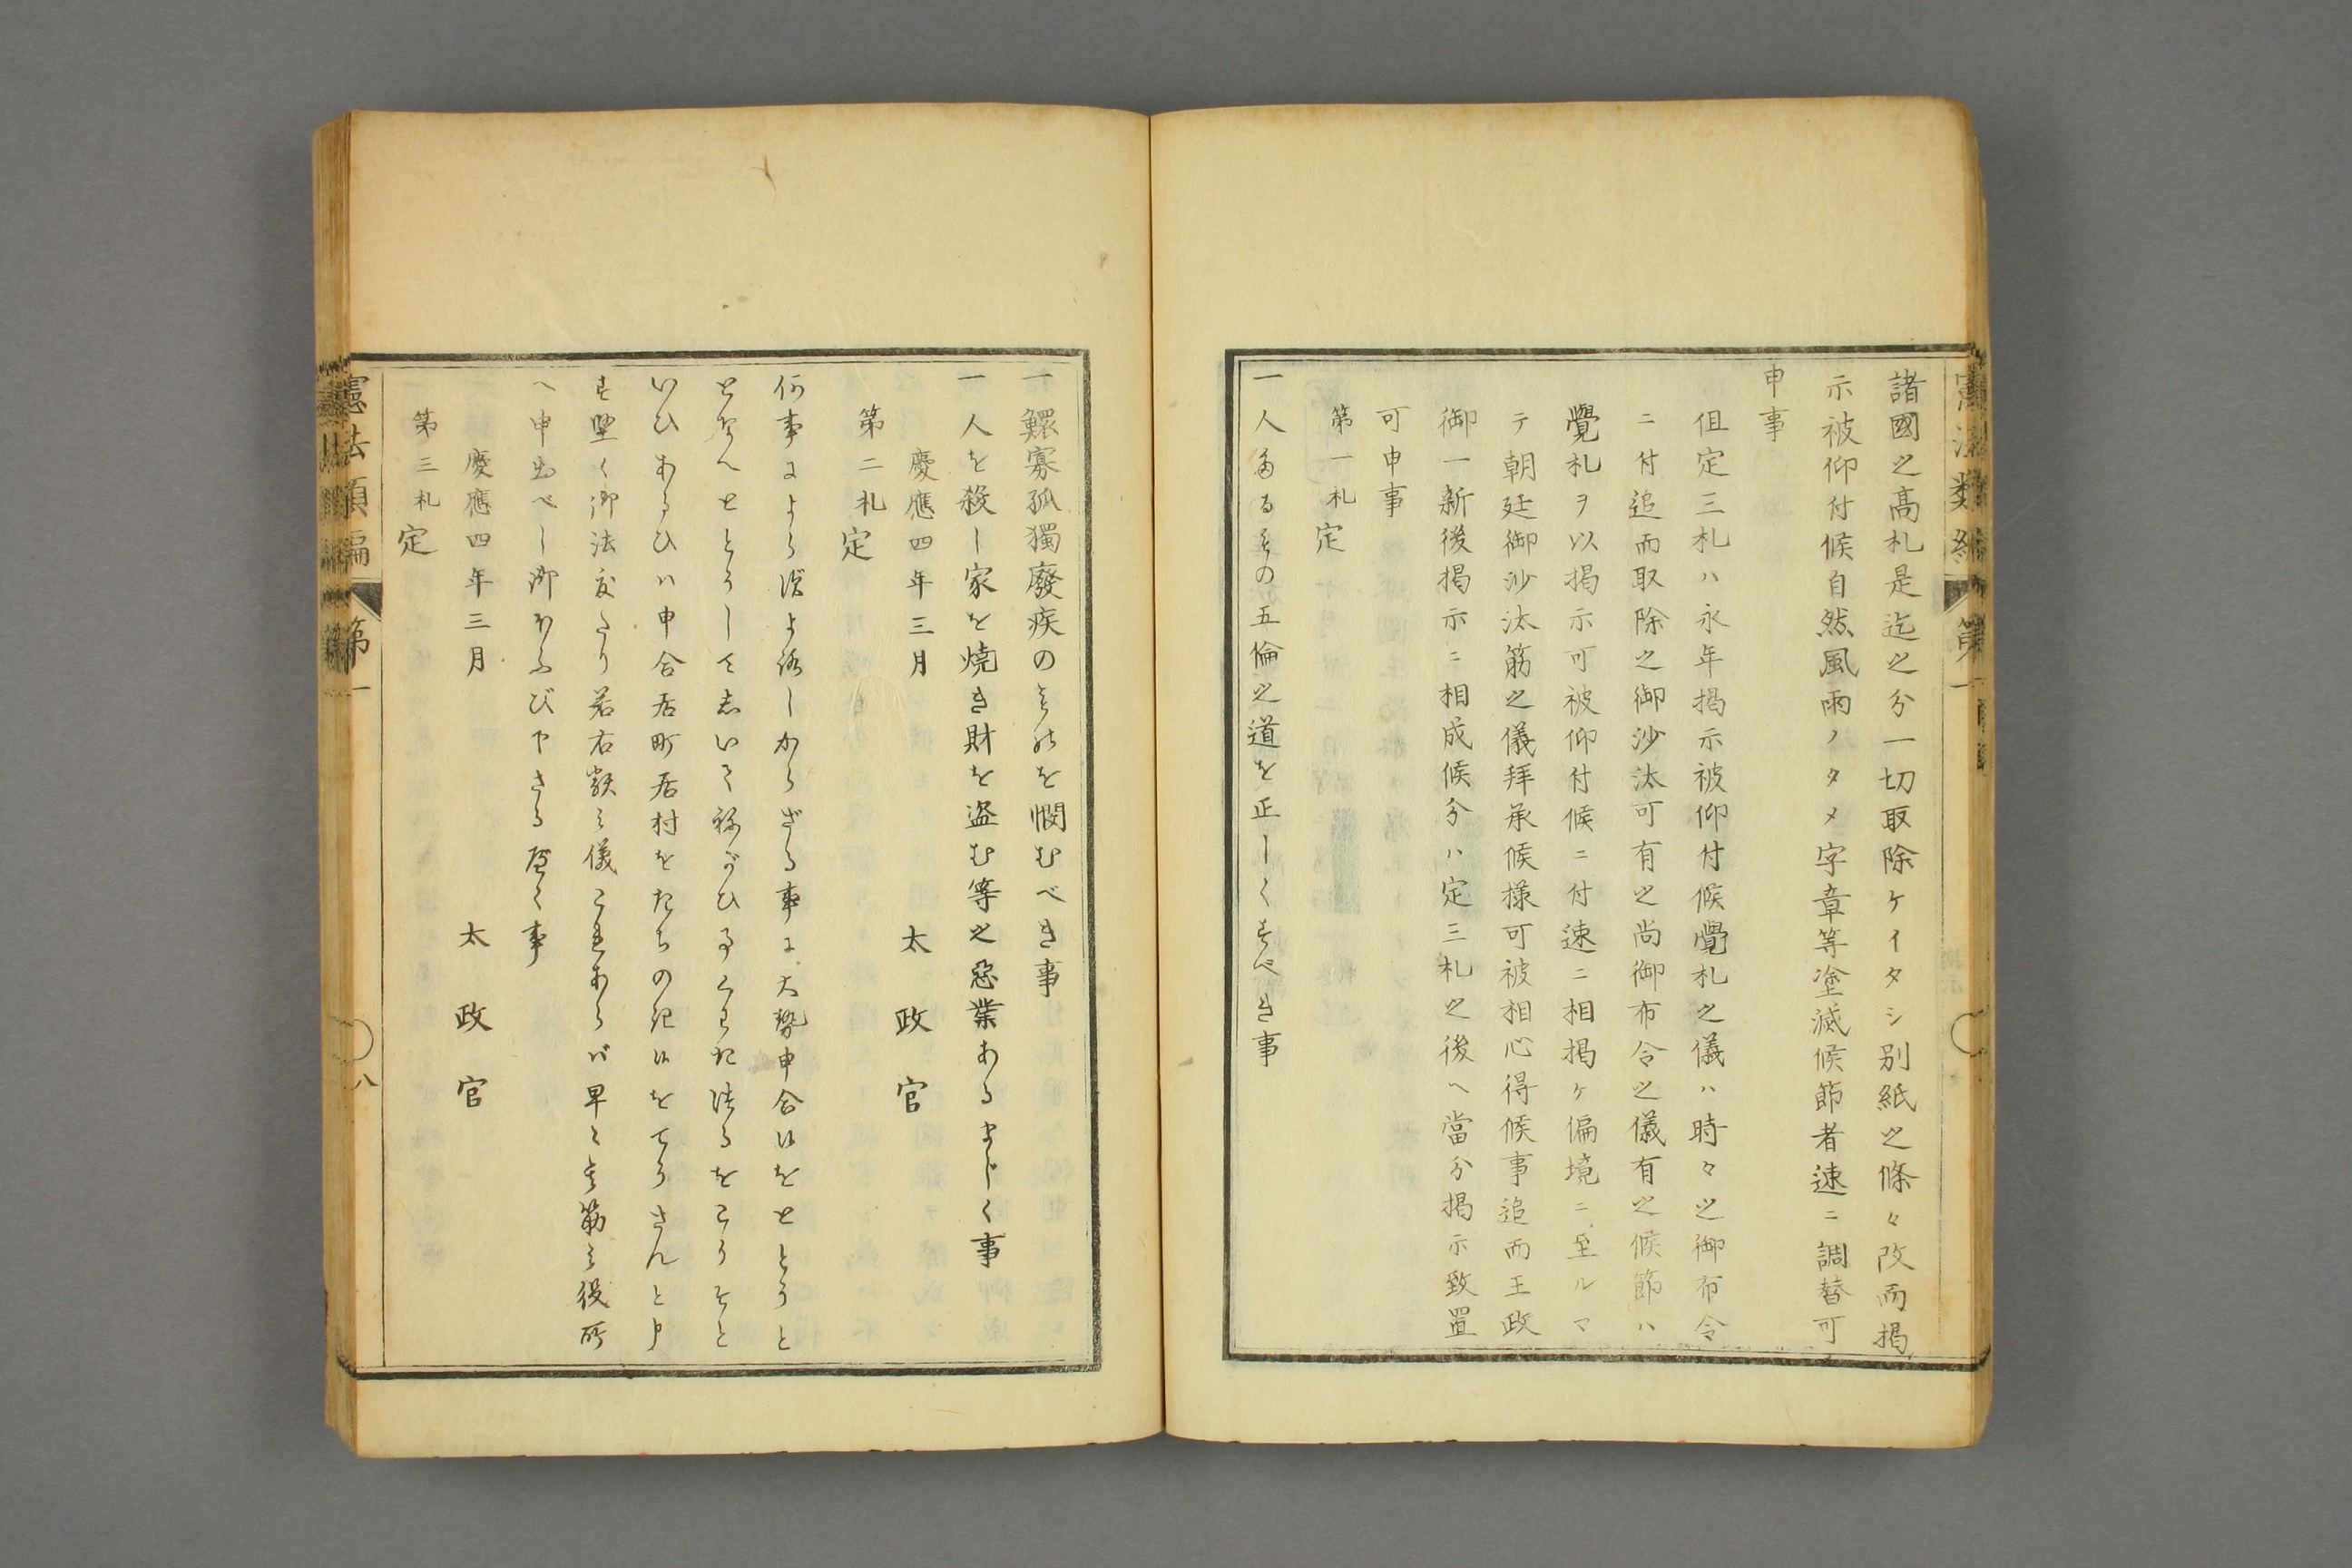 憲法類編 第一
諸國之高札是迄之分一切取除ケイタシ別紙之條々改而掲
示被仰付候自然風雨ノタメ字章等塗滅候節者速ニ調替可
申事
但定三札ハ永年掲示被仰付候覺札之儀ハ時々之御布令
ニ付追而取除之御沙汰可有之尚御布令之儀有之候節ハ
覺札ヲ以掲示可被仰付候ニ付速ニ相掲ケ偏境ニ至ルマ
テ朝廷御沙汰筋之儀拜承候様可被相心得候事追而王政
御一新後掲示ニ相成候分ハ定三札之後ヘ當分掲示致置
可申事
第一札 定
一 人たるものゝ五倫之道を正しくすべき事
一 鰥寡孤獨廢疾のものを憫むべき事
一 人を殺し家を焼き財を盗む等之惡業あるまじく事
慶應四年三月 太政官
第二札 定
何事によらずよろしからざる事に大勢申合候をとゝうと
となへとゝうしてしいてねがひ事くわだつるをごうそと
いひあるひハ申合居町居村をたちのき候をてうさんと申
す堅く御法度たり若右類之儀これあらバ早々其筋之役所
へ申出べし御ほふび下さるべく事
慶應四年三月 太政官
第三札 定
憲法類編 第一
八